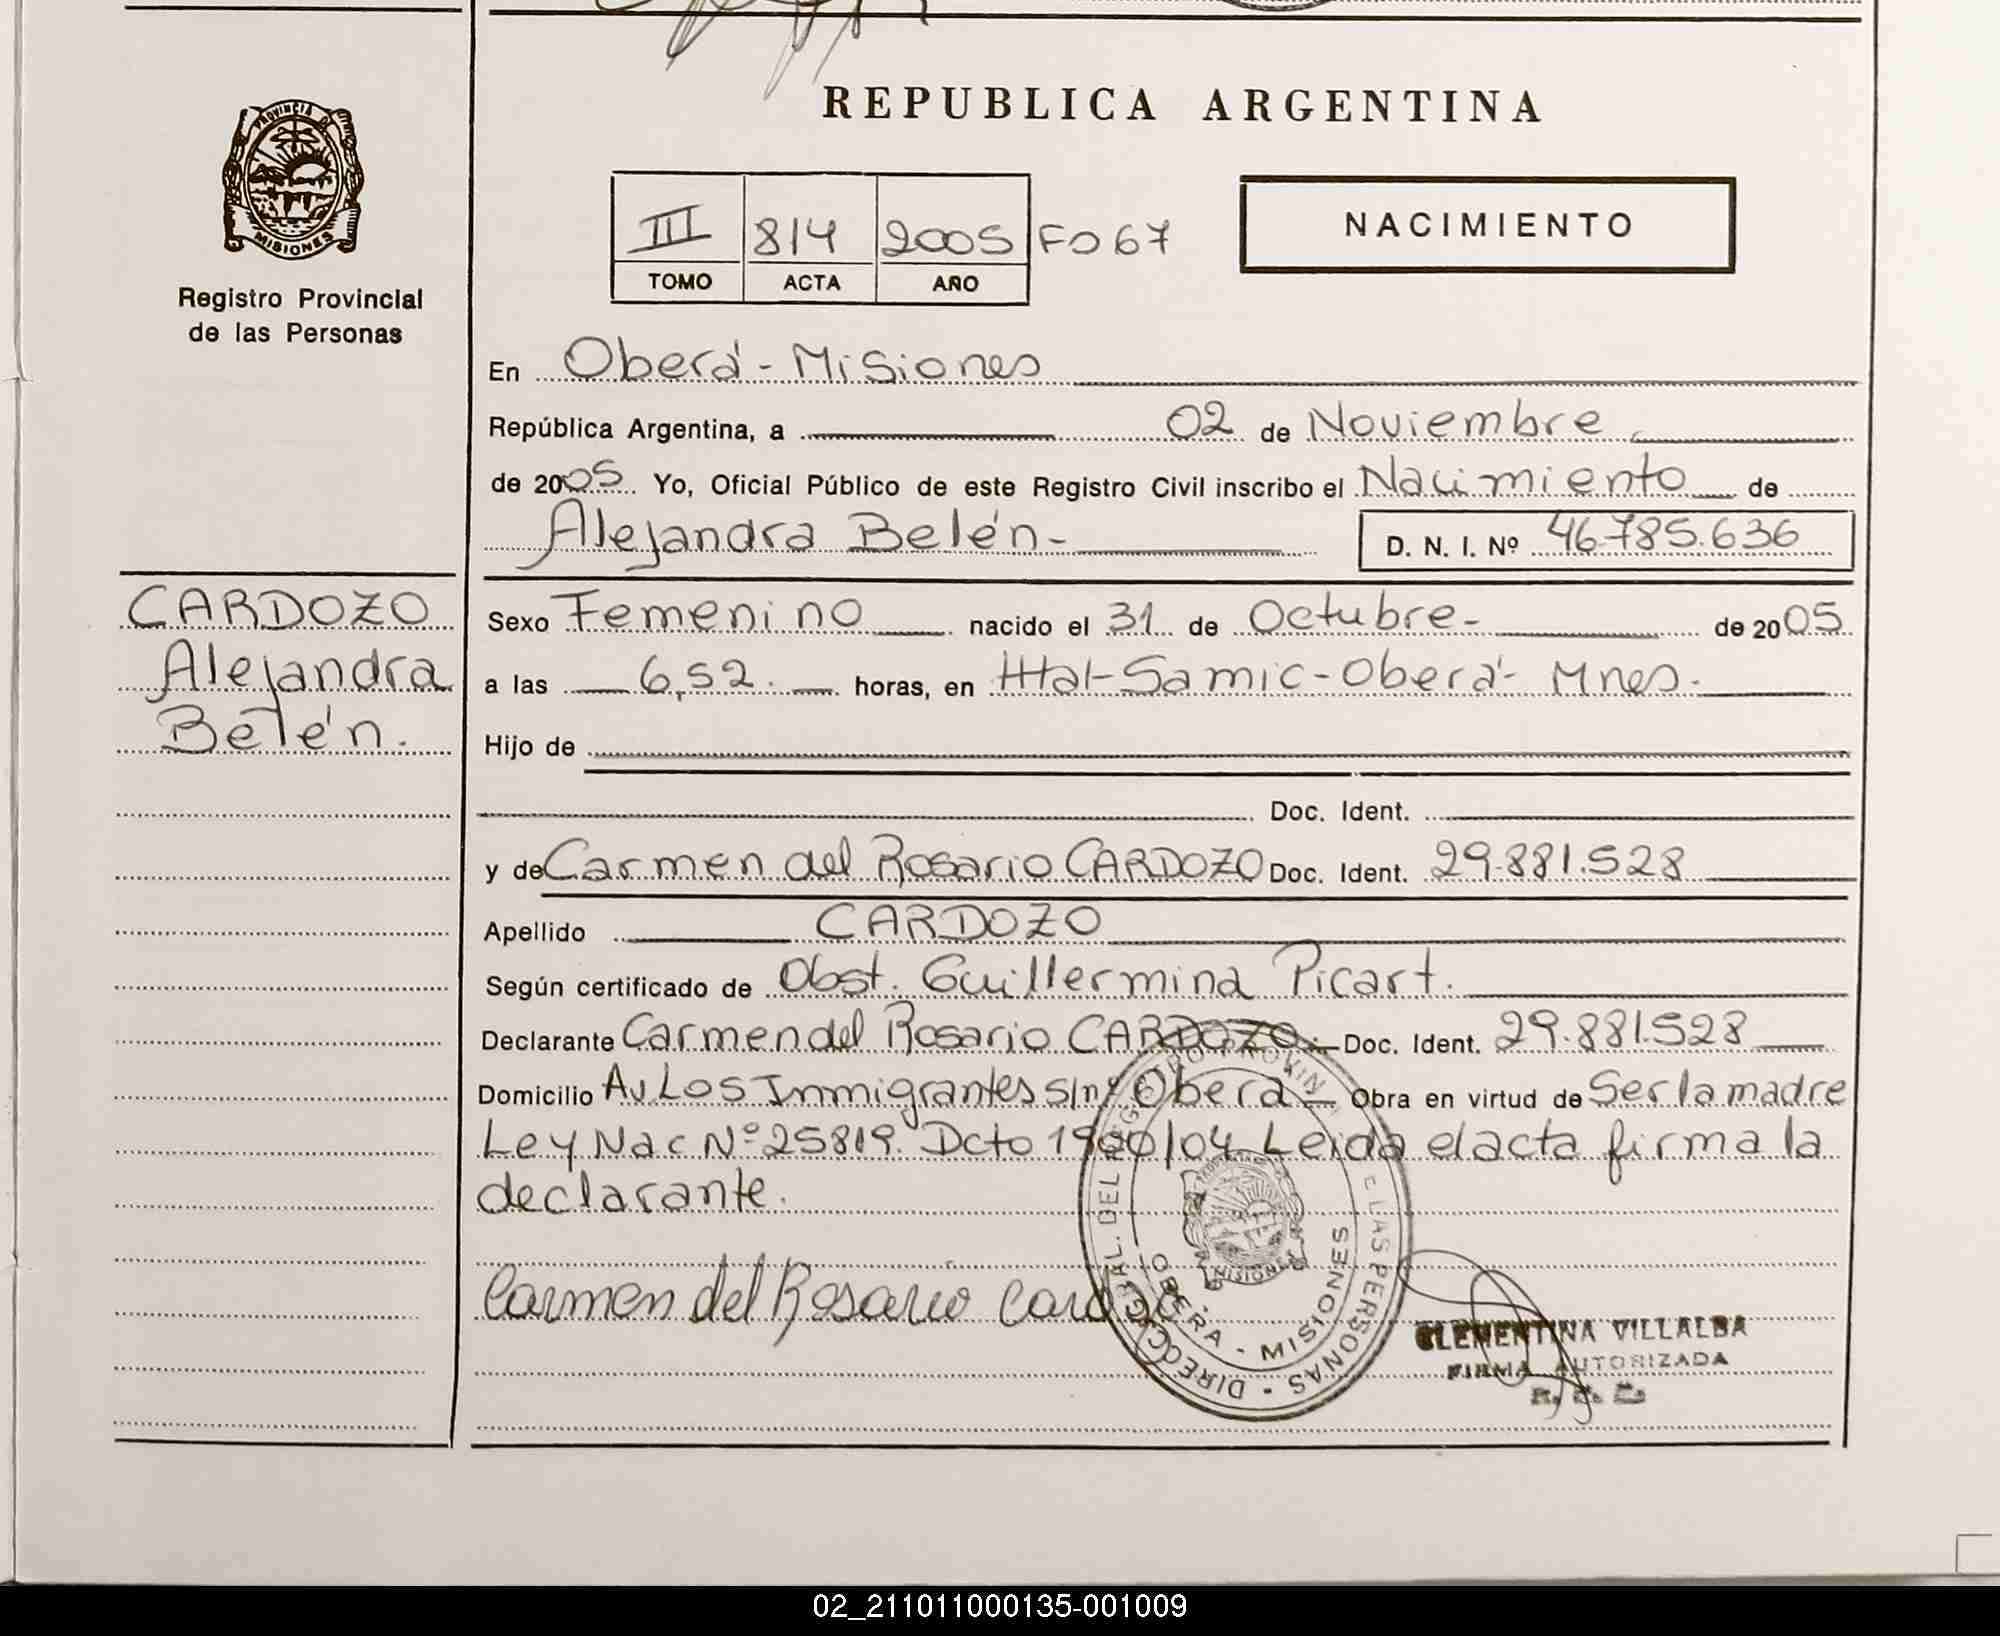 REPUBLICA ARGENTINA
PROVINCIA D
MISIONES
Registro Provincial
de las Personas
III 814 2005 Fo 67
TOMO ACTA AÑO
NACIMIENTO
En Oberá - Misiones
República Argentina, a 02 de Noviembre
de 2005 Yo, Oficial Público de este Registro Civil inscribo el Nacimiento de
Alejandra Belén- D. N. I. Nº 46.785.636
CARDOZO
Alejandra
Belén.
Sexo Femenino nacido el 31 de Octubre- de 2005
a las 6,52. horas, en Htal-Samic-Oberá- Mnes.
Hijo de
Doc. Ident.
y de Carmen del Rosario CARDOZO Doc. Ident. 29.881.528
Apellido CARDOZO
Según certificado de Obst. Guillermina Picart.
Declarante Carmen del Rosario CARDOZO.- Doc. Ident. 29.881.528
Domicilio Av Los Inmigrantes s/nº Oberá- Obra en virtud de Ser la madre
Ley Nac Nº 25819. Dcto 1900/04 Leida el acta firma la
declarante.
Carmen del Rosario Cardozo
OBERA - MISIONES
MISIONES
CLEMENTINA VILLALBA
FIRMA AUTORIZADA
02_211011000135-001009